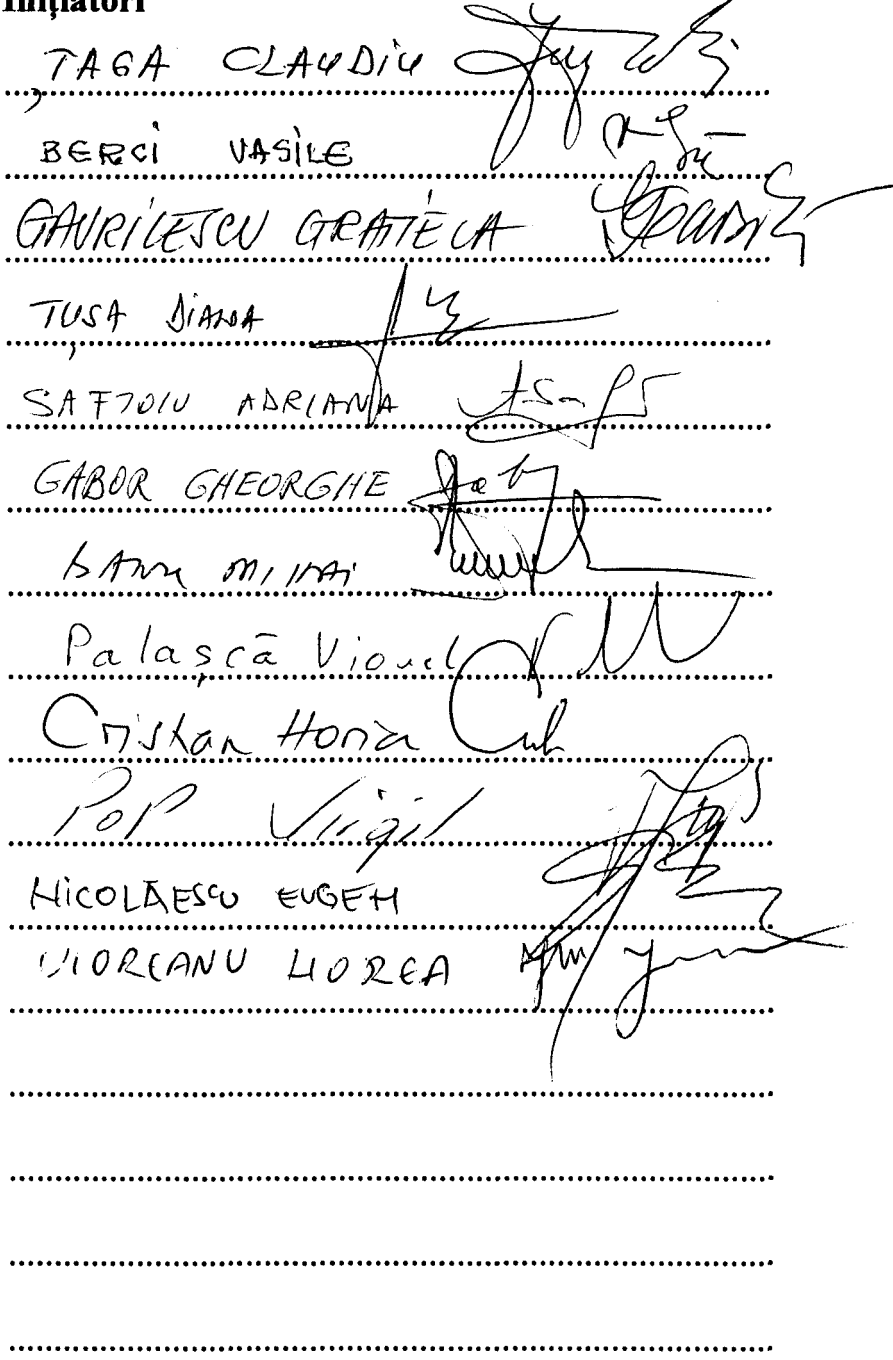 Inițiatori
ȚAGA CLAUDIU
BERCI VASILE
GAVRILESCU GRATIELA
TUȘA DIANA
SAFTOIU ADRIANA
GABOR GHEORGHE
BANU MIHAI
Palașcă Viorel
Cristian Horia
POP Virgil
NICOLĂESCU EUGEN
UIOREANU HOREA